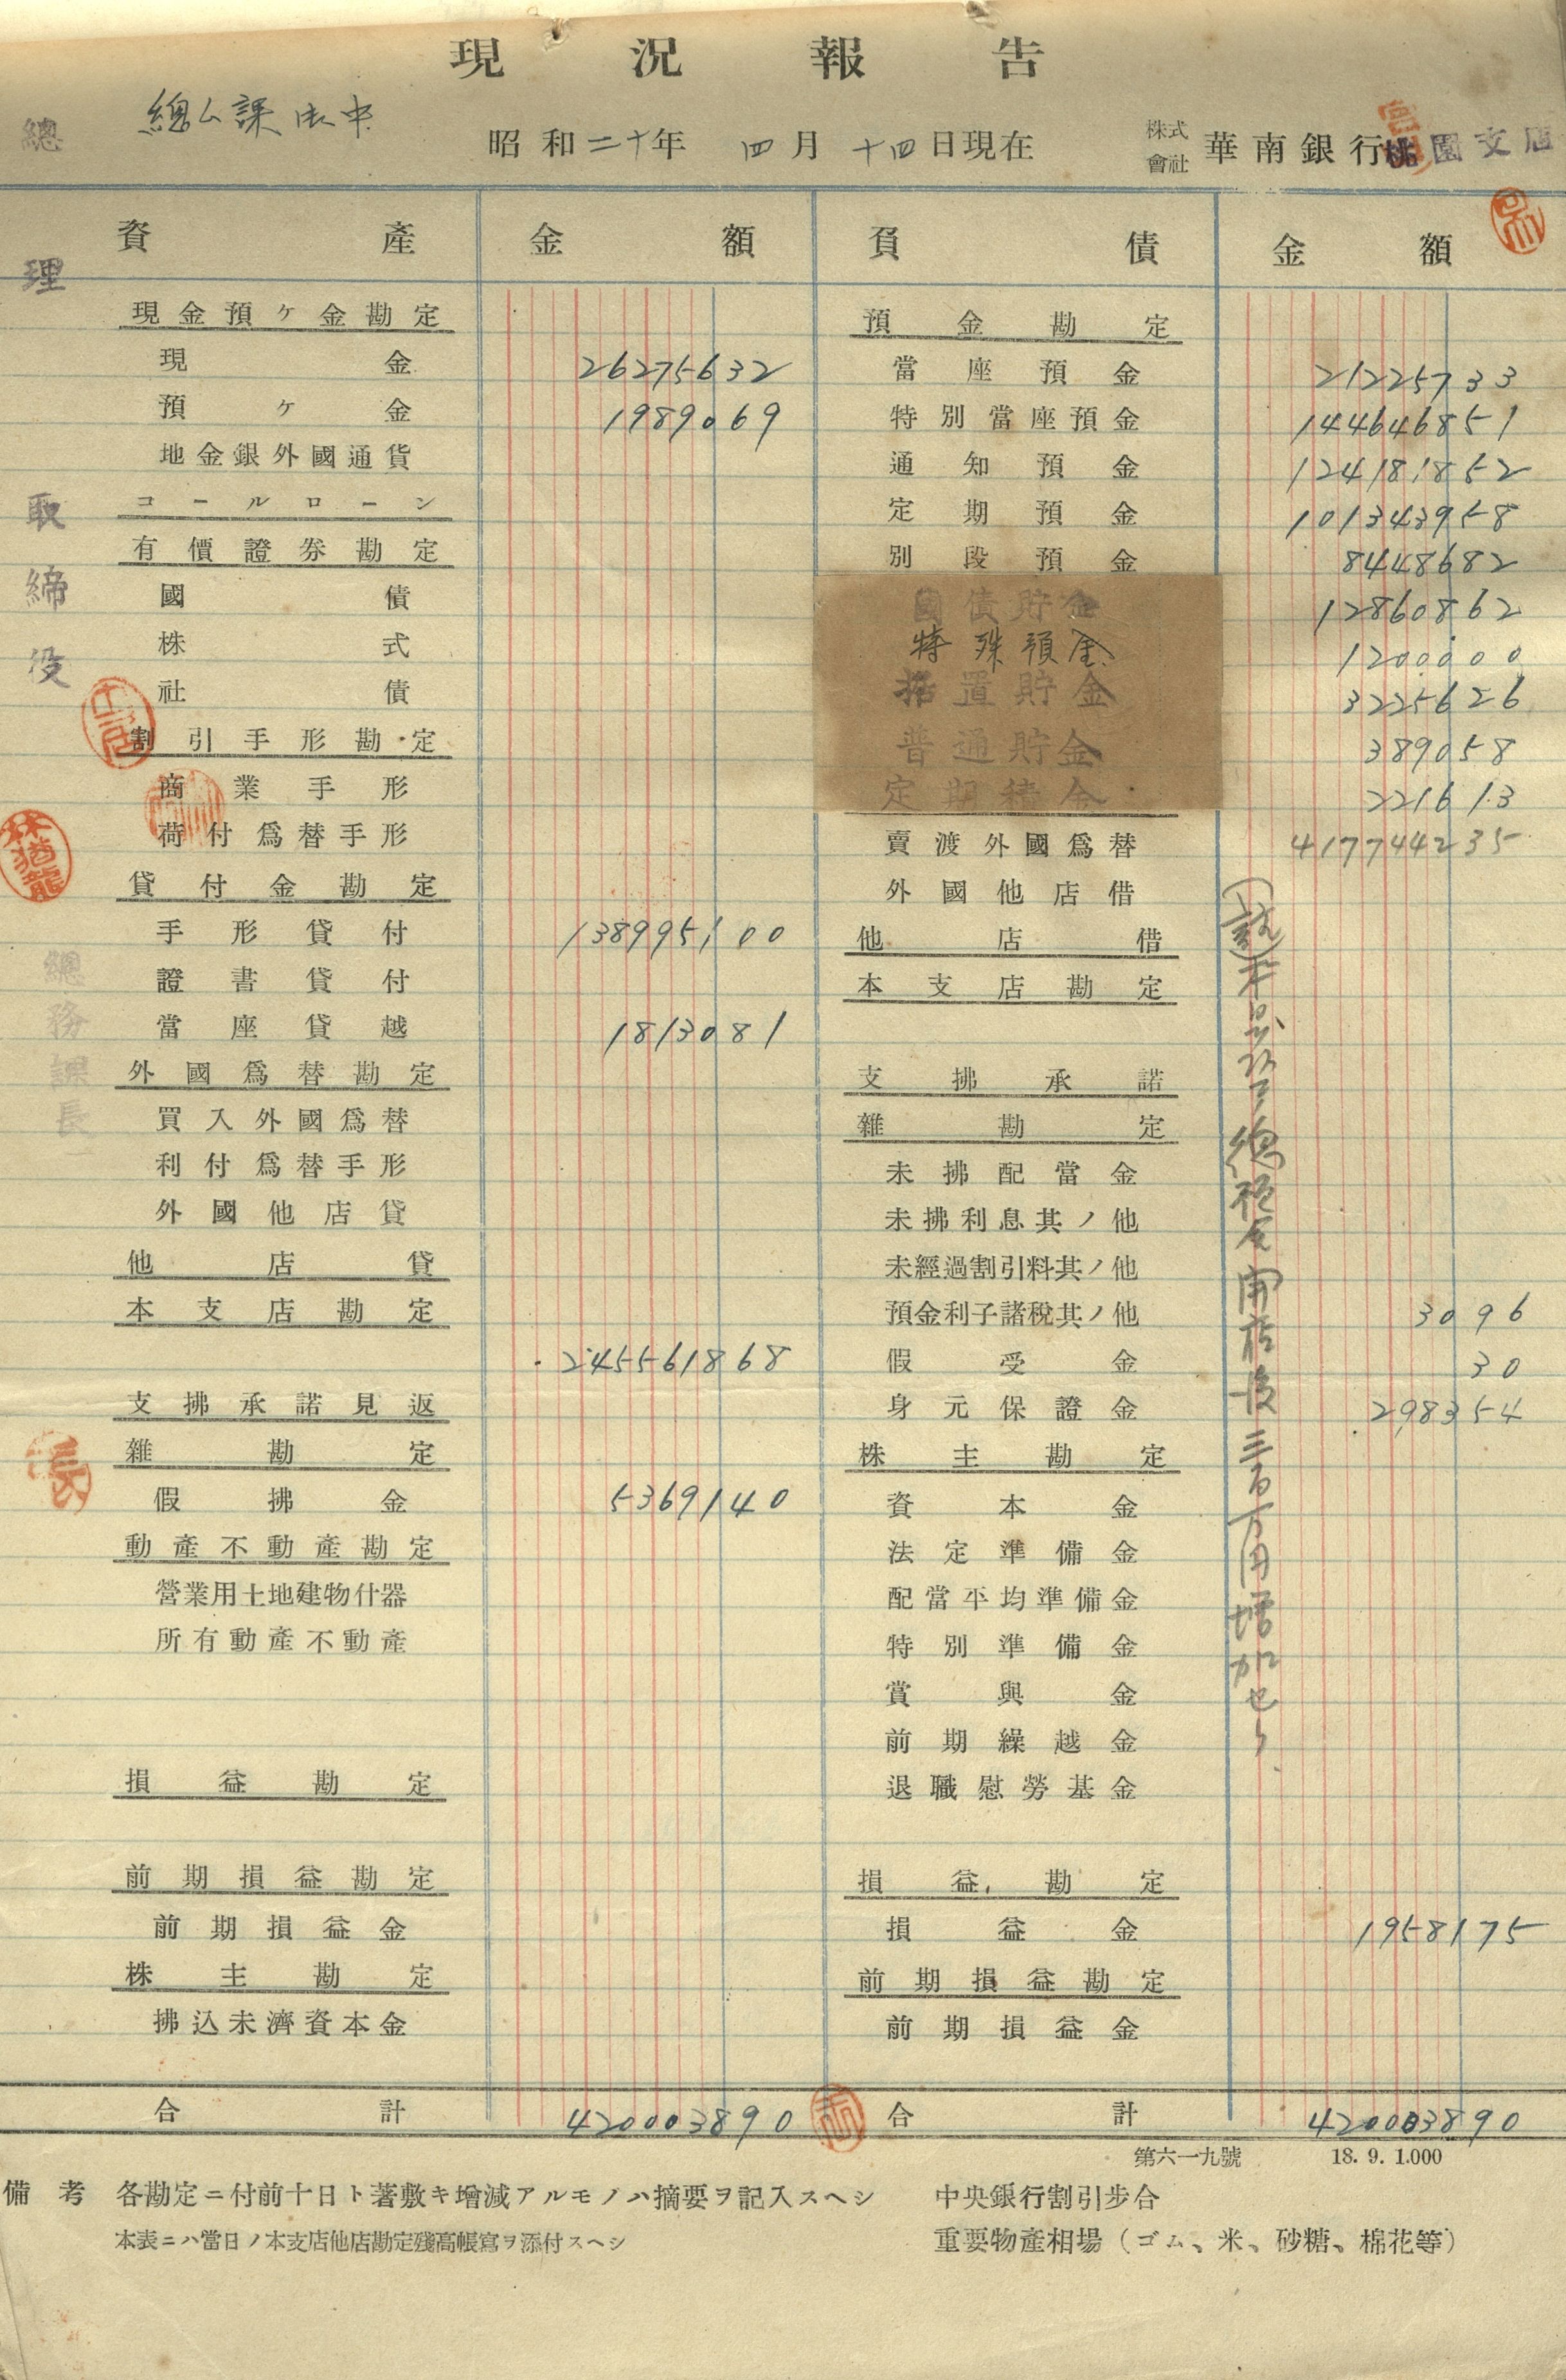 現況報告
總公課御中
昭和二十年 四月 十四日現在
株式會社 華南銀行桃園支店
總理
取締役
總務課長
林猶龍
資產 金額 負債 金額
現金預ケ金勘定
現金 26275632
預ケ金 1989069
地金銀外國通貨
コールローン
有價證券勘定
國債
株式
社債
割引手形勘定
商業手形
荷付爲替手形
貸付金勘定
手形貸付 138995100
證書貸付
當座貸越 1813081
外國爲替勘定
買入外國爲替
利付爲替手形
外國他店貸
他店貸
本支店勘定
245561868
支拂承諾見返
雜勘定
假拂金 5369140
動產不動產勘定
營業用土地建物什器
所有動產不動產
損益勘定
前期損益勘定
前期損益金
株主勘定
拂込未濟資本金
合計 420003890
預金勘定
當座預金 21225733
特別當座預金 144646851
通知預金 124181852
定期預金 101343958
別段預金 8448682
國債貯金 12860862
特殊預金 1200000
据置貯金 3225626
普通貯金 389058
定期積金 221613
賣渡外國爲替 417744235
外國他店借
他店借
本支店勘定
支拂承諾
雜勘定
未拂配當金
未拂利息其ノ他
未經過割引料其ノ他
預金利子諸稅其ノ他 3096
假受金 30
身元保證金 298354
株主勘定
資本金
法定準備金
配當平均準備金
特別準備金
賞與金
前期繰越金
退職慰勞基金
損益勘定
損益金 1958175
前期損益勘定
前期損益金
合計 420003890
開店後三百万円增加也
第六一九號 18. 9. 1.000
備考 各勘定ニ付前十日ト著敷キ增減アルモノハ摘要ヲ記入スヘシ
本表ニハ當日ノ本支店他店勘定殘高帳寫ヲ添付スヘシ
中央銀行割引步合
重要物產相場(ゴム、米、砂糖、棉花等)